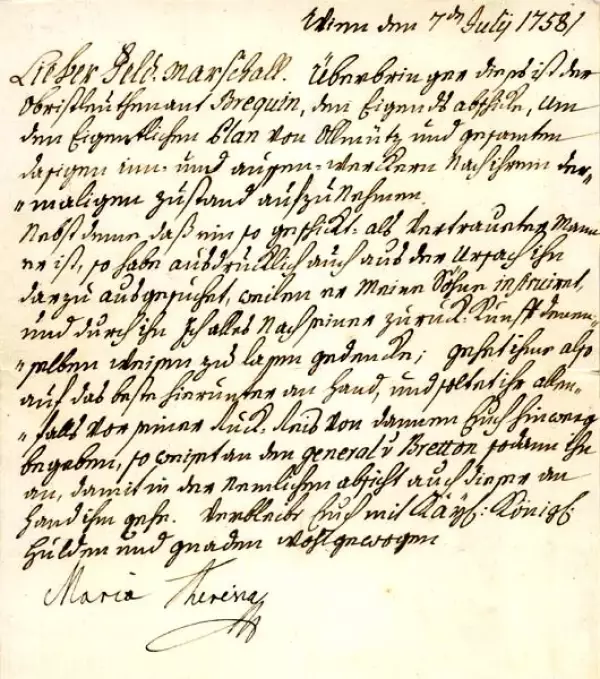 Wien den 7den July 1758/
Lieber Feld. Marschall. Überbringer dieses ist der
Obristleuthenant Brequin, den Eigends abschike, um
den Eigentlichen Plan von Ollmütz und gesamten
dasigen inn- und ausen-werckern nach ihrem der-
-maligen zustand aufzunehmen.
Nebst deme daß ein so geschickt- als vertrauter Mann
er ist, so habe ausdrücklich auch aus der Ursach ihn
darzu ausgesuchet, weilen er meine Söhne instruiret,
und durch ihn ich alles nach seiner zurück-kunft denen-
-selben weisen zu lasen gedencke; gehet ihme also
auf das beste hierunter an Hand, und soltet ihr allen-
-falls vor seiner Ruck-Reis von dannen Euch hinweg
begeben, so weiset an den general v Bretton sodann ihn
an, damit in der nemlichen absicht auch dieser an
Hand ihm gehe. Verbleibe Euch mit Kaÿs: Königl:
Hulden und gnaden wohlgewogen
Maria Theresia